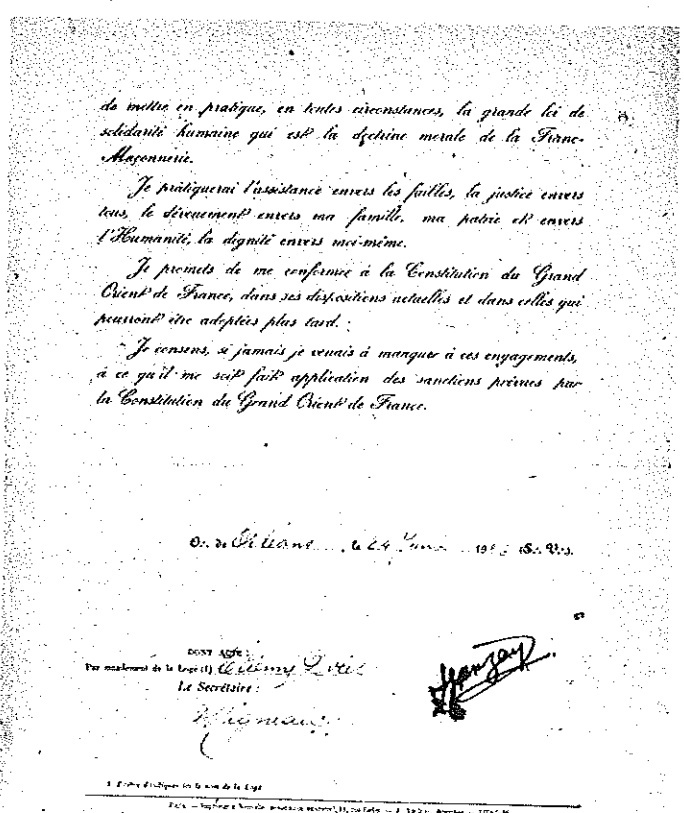 de mettre en pratique, en toutes circonstances, la grande loi de
solidarité humaine qui est la doctrine morale de la Franc-
Maçonnerie.
Je pratiquerai l'assistance envers les faibles, la justice envers
tous, le dévouement envers ma famille, ma patrie et envers
l'Humanité, la dignité envers moi-même.
Je promets de me conformer à la Constitution du Grand
Orient de France, dans ses dispositions actuelles et dans celles qui
pourront être adoptées plus tard.
Je consens, si jamais je venais à manquer à ces engagements,
à ce qu'il me soit fait application des sanctions prévues par
la Constitution du Grand Orient de France.
O∴ de Orléans le 24 19
DONT ACTE :
Par mandement de la Loge (1) Etienne Dolet
Le Secrétaire :
Jean Zay